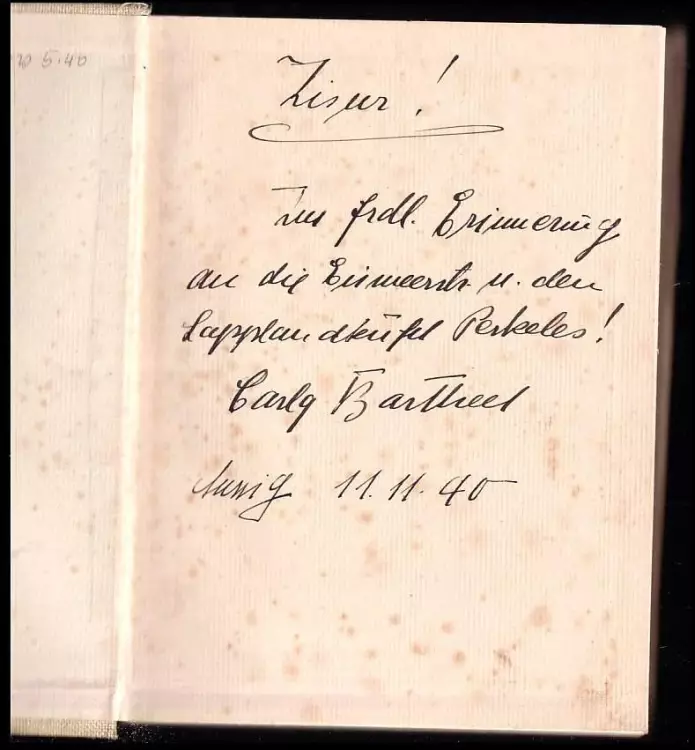 10 5.40
!
Zur frdl. Erinnerung
an die Eismeerstr. u. den
Lapplandteufel Perkeles!
Carly Barthel
Aussig 11.11.40